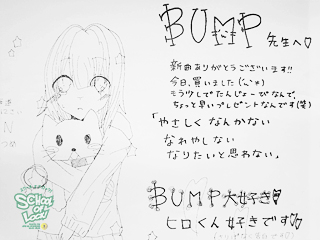 BUMP 先生へ♡
新曲ありがとうございます!!
今日、買いました(^-^*)
もう少しでたんじょーびなんで、
ちょっと早いプレゼントなんです(笑)
「やさしくなんかない
なれやしない
なりたいと思わない」
BUMP大好き♥
ヒロくん好きです♡
SCHOOL OF LOCK!